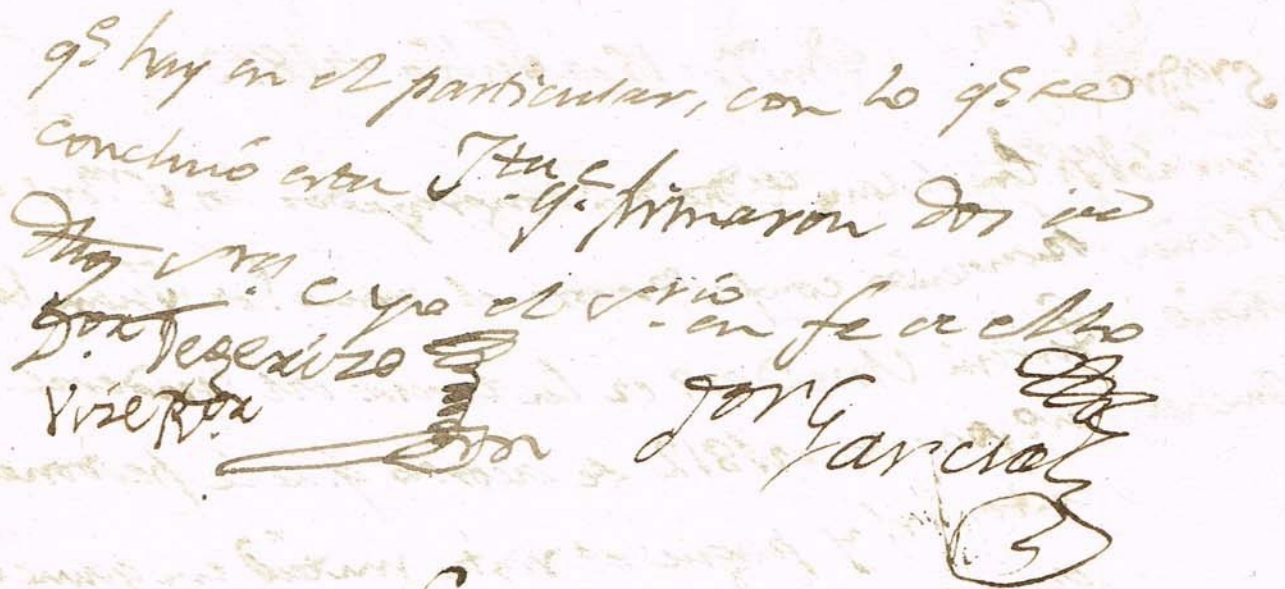 qe hay en el particular, con lo qe se
concluió esta Jta qe firmaron dos de
dhos sres e yo el Srio en fe de ello
Dor Tegerizo
Vice Ror
Dor Garcia